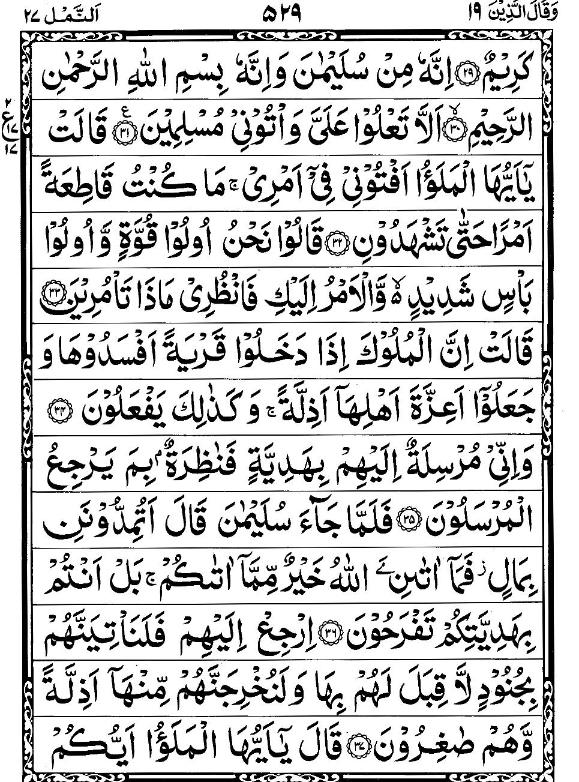 وَقَالَ الَّذِيْنَ ١٩ ٥٢٩ اَلنَّمْل ٢٧
كَرِيْمٌ ﴿٢٩﴾ اِنَّهٗ مِنْ سُلَيْمٰنَ وَاِنَّهٗ بِسْمِ اللّٰهِ الرَّحْمٰنِ
الرَّحِيْمِ ﴿٣٠﴾ اَلَّا تَعْلُوْا عَلَيَّ وَاْتُوْنِيْ مُسْلِمِيْنَ ﴿٣١﴾ قَالَتْ
يٰٓاَيُّهَا الْمَلَؤُا اَفْتُوْنِيْ فِيْٓ اَمْرِيْ ۚ مَا كُنْتُ قَاطِعَةً
اَمْرًا حَتّٰى تَشْهَدُوْنِ ﴿٣٢﴾ قَالُوْا نَحْنُ اُولُوْا قُوَّةٍ وَّاُولُوْا
بَاْسٍ شَدِيْدٍ ەۙ وَّالْاَمْرُ اِلَيْكِ فَانْظُرِيْ مَاذَا تَاْمُرِيْنَ ﴿٣٣﴾
قَالَتْ اِنَّ الْمُلُوْكَ اِذَا دَخَلُوْا قَرْيَةً اَفْسَدُوْهَا وَ
جَعَلُوْٓا اَعِزَّةَ اَهْلِهَآ اَذِلَّةً ۚ وَكَذٰلِكَ يَفْعَلُوْنَ ﴿٣٤﴾
وَاِنِّيْ مُرْسِلَةٌ اِلَيْهِمْ بِهَدِيَّةٍ فَنٰظِرَةٌۢ بِمَ يَرْجِعُ
الْمُرْسَلُوْنَ ﴿٣٥﴾ فَلَمَّا جَآءَ سُلَيْمٰنَ قَالَ اَتُمِدُّوْنَنِ
بِمَالٍ ز فَمَآ اٰتٰىنِۦَ اللّٰهُ خَيْرٌ مِّمَّآ اٰتٰىكُمْ ۚ بَلْ اَنْتُمْ
بِهَدِيَّتِكُمْ تَفْرَحُوْنَ ﴿٣٦﴾ اِرْجِعْ اِلَيْهِمْ فَلَنَاْتِيَنَّهُمْ
بِجُنُوْدٍ لَّا قِبَلَ لَهُمْ بِهَا وَلَنُخْرِجَنَّهُمْ مِّنْهَآ اَذِلَّةً
وَّهُمْ صٰغِرُوْنَ ﴿٣٧﴾ قَالَ يٰٓاَيُّهَا الْمَلَؤُا اَيُّكُمْ